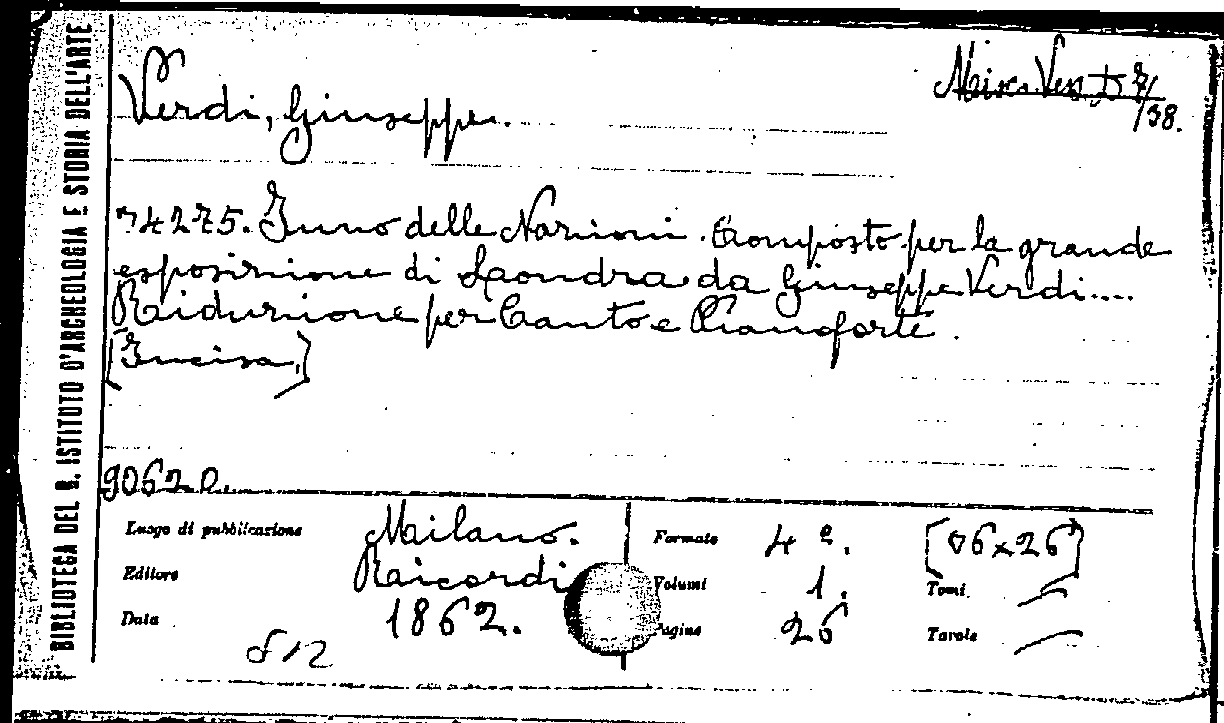 BIBLIOTECA DEL R. ISTITUTO D'ARCHEOLOGIA E STORIA DELL'ARTE
Verdi, Giuseppe.
34275. Inno delle Nazioni. Composto per la grande
esposizione di Laondra da Giuseppe Verdi....
Riduzione per Canto e Pianoforte.
[Incisa.]
90620.
Luogo di pubblicazione Milano.
Editore Ricordi
Data 1862.
Formato 4º.
Volumi 1.
Tomi
Pagine 26
Tavole
512